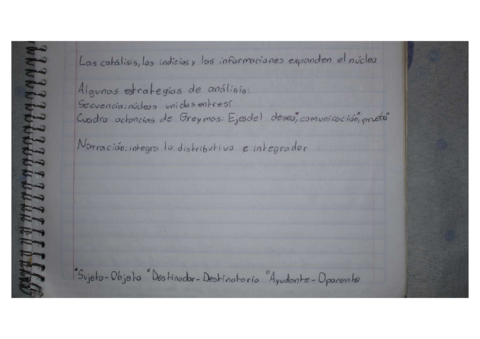 Las catálisis, los indicios y las informaciones expanden el núcleo
Algunas estrategias de análisis:
Secuencia: núcleos unidos entre sí
Cuadro actancias de Greymas: Ejes del deseo*, comunicación*, prueba*
Narración: integra lo distributivo e integrador
*Sujeto-Objeto *Destinador-Destinatario *Ayudante-Oponente